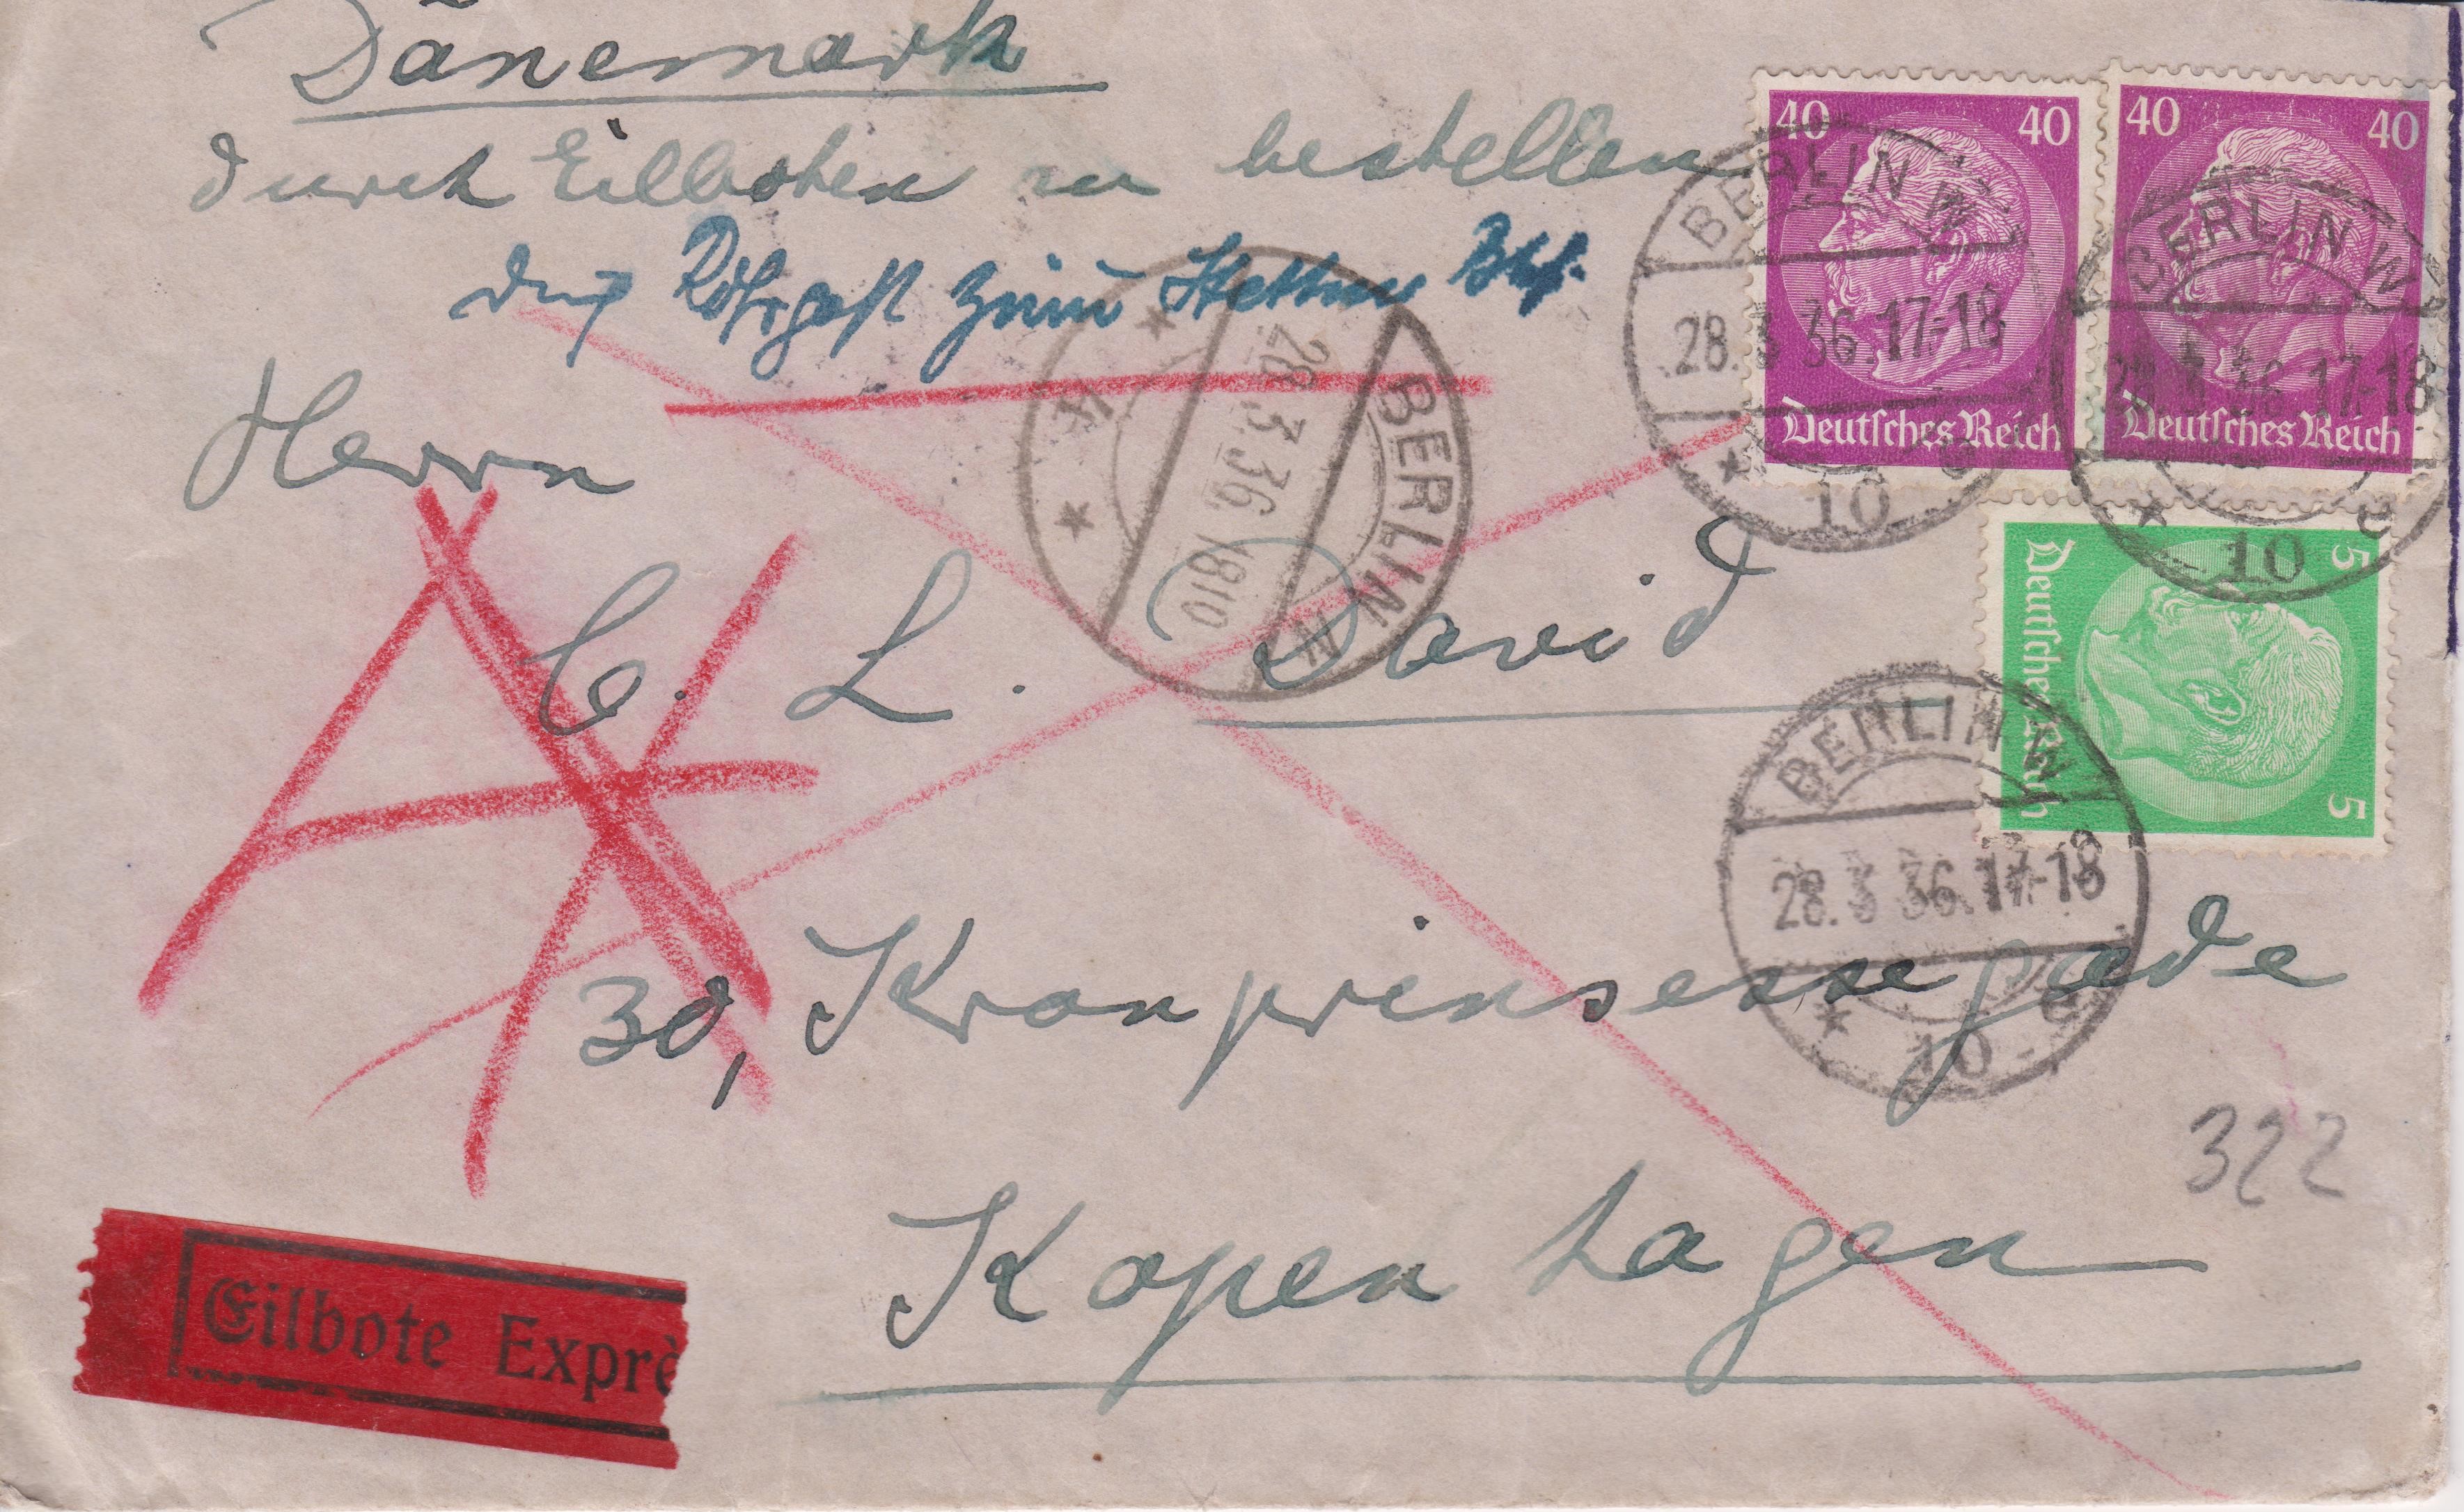 Dänemark
durch Eilboten zu bestellen
durch Rohrpost zum Stettiner Bhf.
Herrn
C. L. David
30, Kronprinsessegade
Kopenhagen
40 40
Deutsches Reich
40 40
Deutsches Reich
5 5
Deutsches Reich
BERLIN W
28.3 36.17-18
10
BERLIN W
28.3 36.17-18
10
BERLIN W
28.3 36.17-18
10
BERLIN N
28.3.36.1810
4
322
Eilbote Exprè